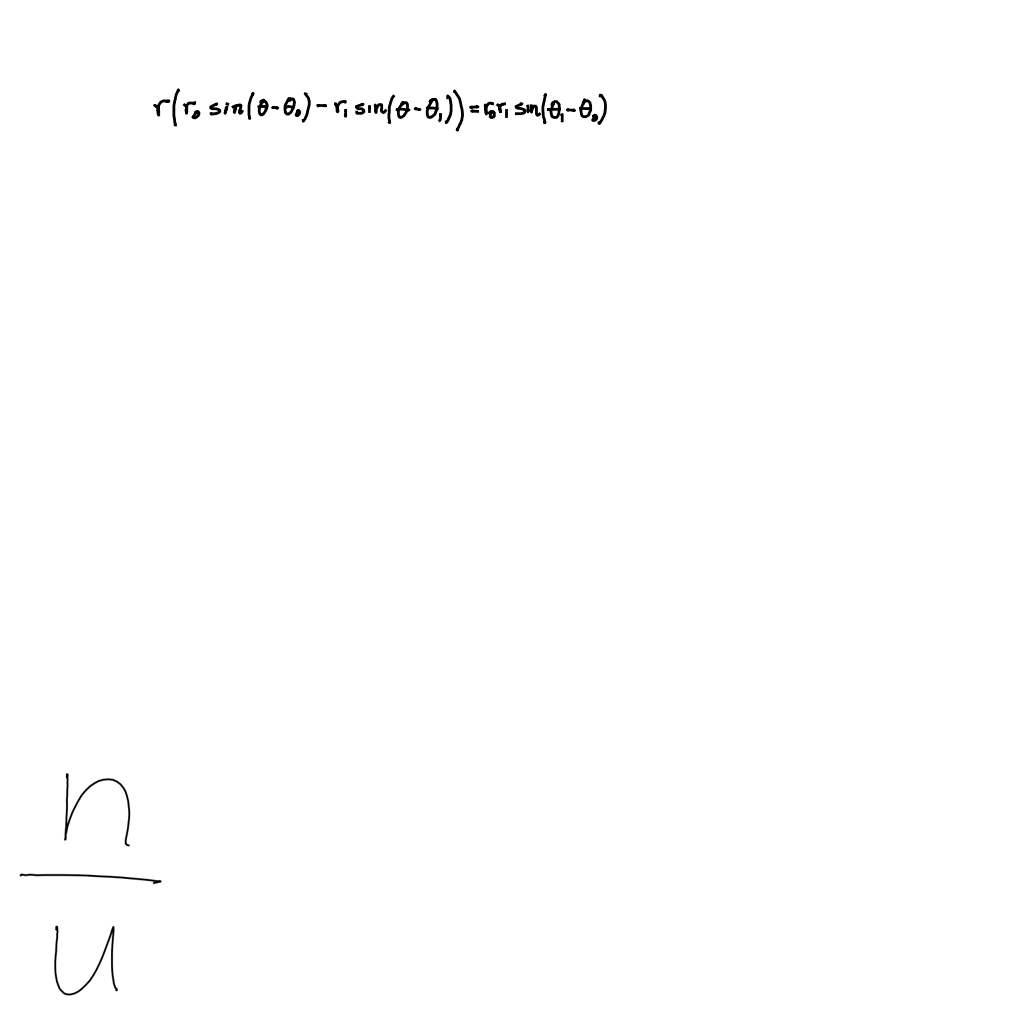 r(r₀ sin(θ-θ₀) - r₁ sin(θ-θ₁)) = r₀r₁ sin(θ₁-θ₀)
n
u